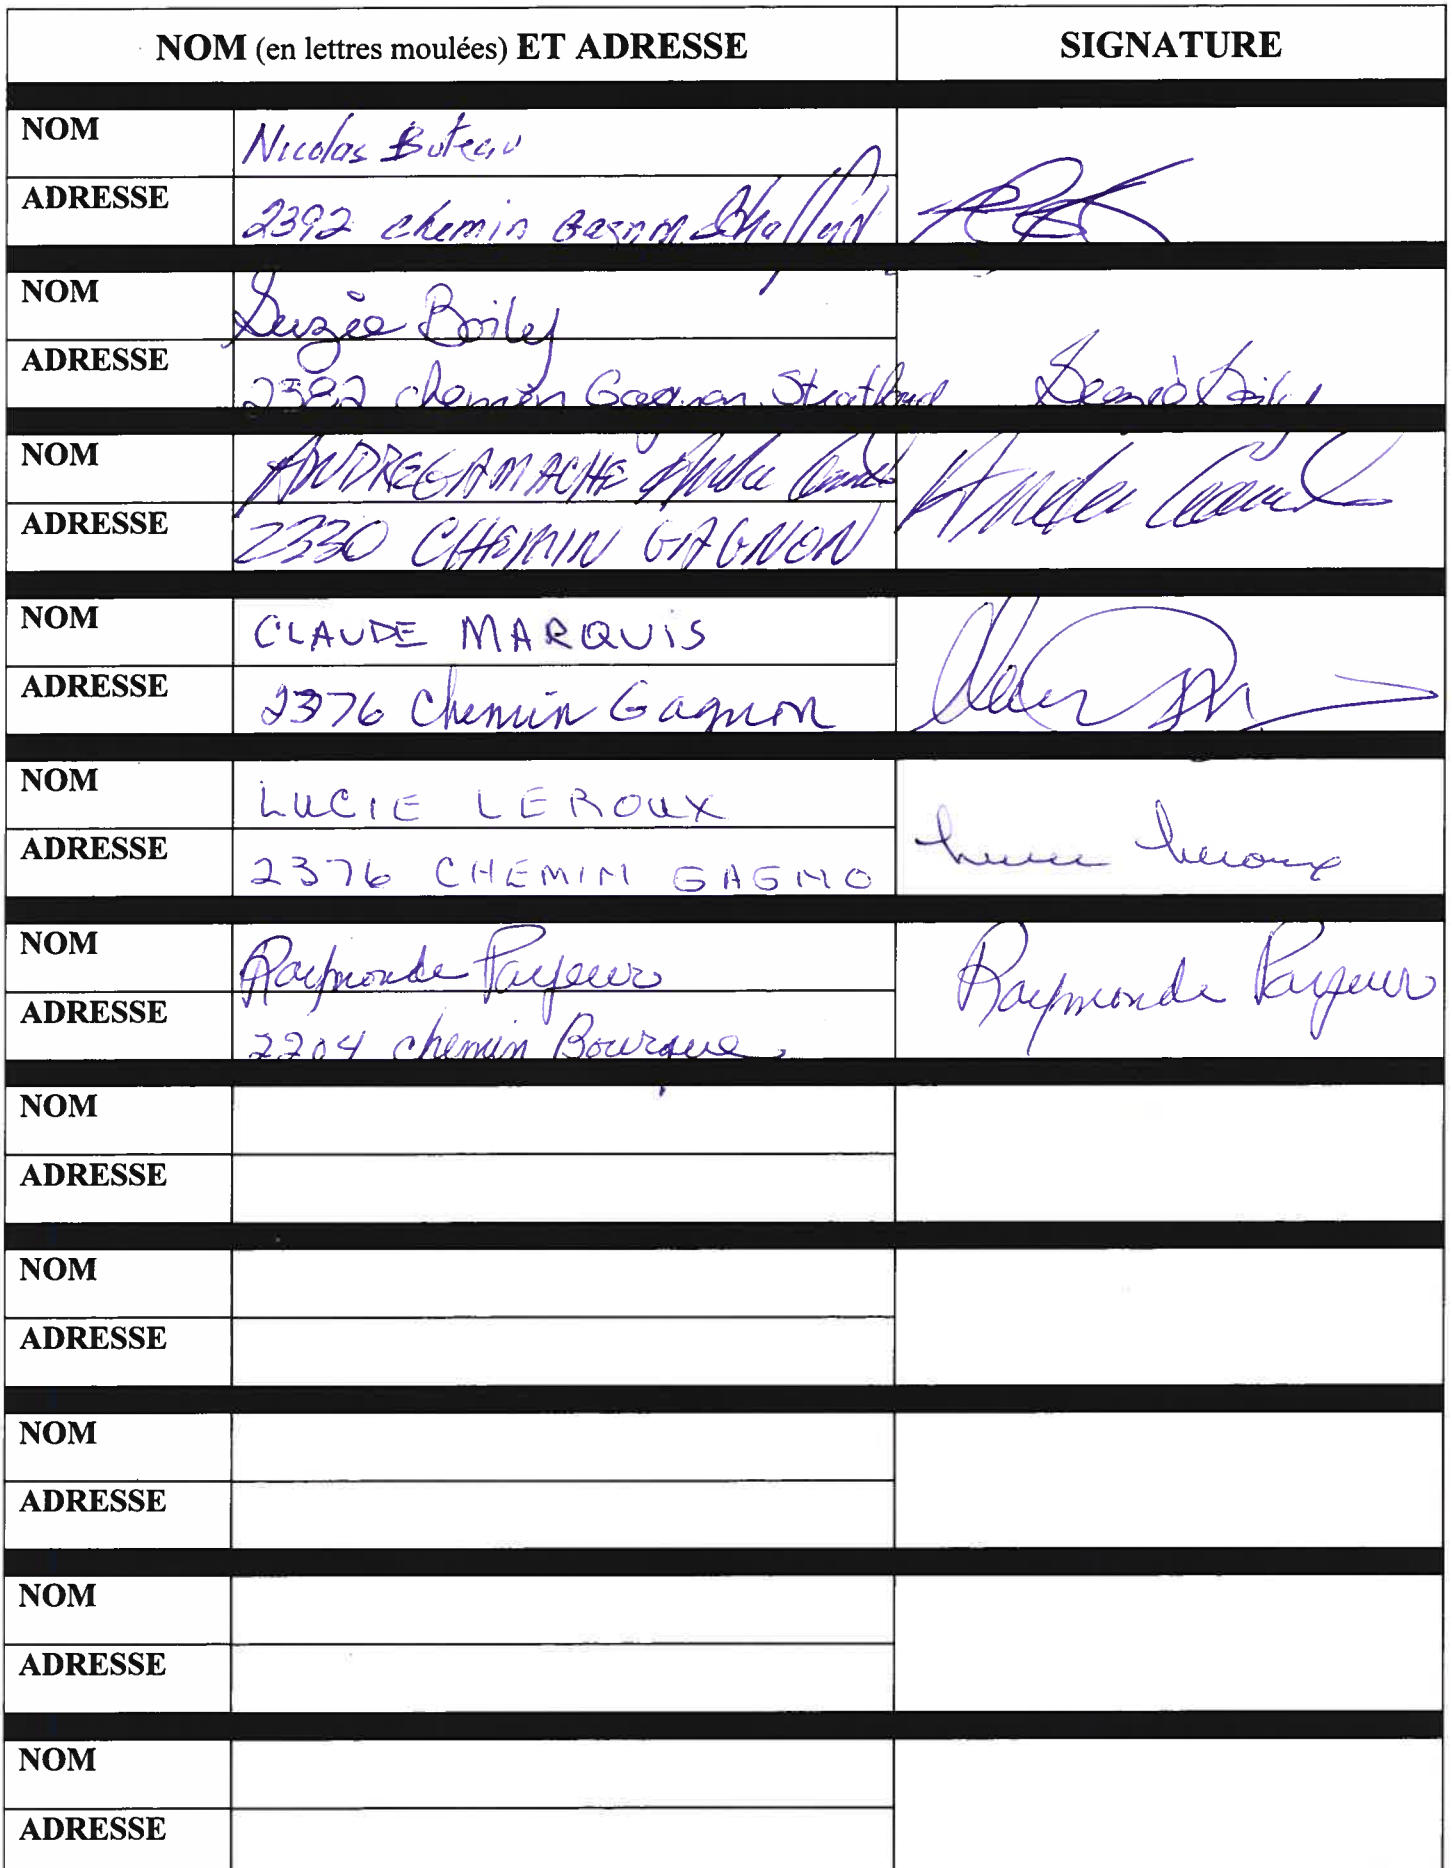 NOM (en lettres moulées) ET ADRESSE SIGNATURE
NOM Nicolas Buteau
ADRESSE 2392 chemin Gagnon
NOM Suzie Boily
ADRESSE 2392 chemin Gagnon Stratford
NOM ANDRE GAMACHE
ADRESSE 2330 CHEMIN GAGNON
NOM CLAUDE MARQUIS
ADRESSE 2376 Chemin Gagnon
NOM LUCIE LEROUX
ADRESSE 2376 CHEMIN GAGNO
NOM Raymonde Payeur Raymonde Payeur
ADRESSE 2204 chemin Bourque
NOM
ADRESSE
NOM
ADRESSE
NOM
ADRESSE
NOM
ADRESSE
NOM
ADRESSE